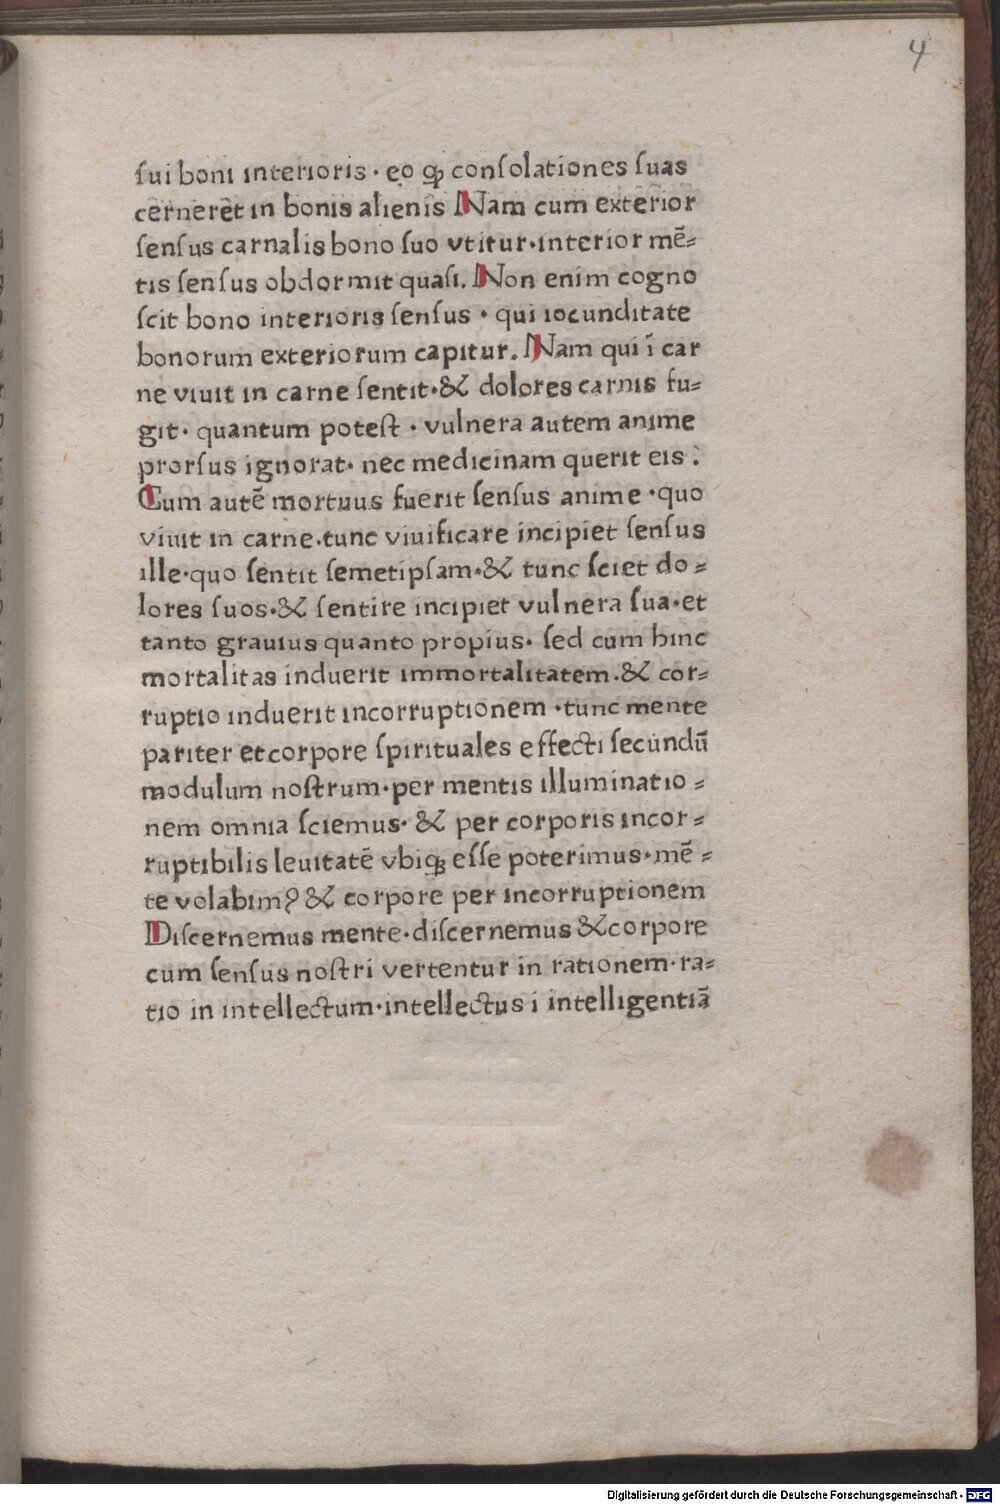 4
ſui boni interioris · eo ꝙ conſolationes ſuas
cerneret̄ in bonis alienis Nam cum exterior
ſenſus carnalis bono ſuo vtitur·interior mē⸗
tis ſenſus obdormit quaſi. Non enim cogno
ſcit bono interioris ſenſus · qui iocunditate
bonorum exteriorum capitur. Nam qui ī car
ne viuit in carne ſentit·& dolores carnis fu⸗
git· quantum poteſt · vulnera autem anime
prorſus ignorat· nec medicinam querit eis :
Cum autē mortuus fuerit ſenſus anime ·quo
viuit in carne.tunc viuificare incipiet ſenſus
ille·quo ſentit ſemetipſam·& tunc ſciet do⸗
lores ſuos·& ſentire incipiet vulnera ſua·et
tanto grauius quanto propius· ſed cum hinc
mortalitas induerit immortalitatem.& cor⸗
ruptio induerit incorruptionem ·tunc mente
pariter et corpore ſpirituales effecti ſecundū
modulum noſtrum·per mentis illuminatio⸗
nem omnia ſciemus· & per corporis incor⸗
ruptibilis leuitatē vbiqꝫ eſſe poterimus·mē⸗
te volabimꝰ & corpore per incorruptionem
Diſcernemus mente·diſcernemus & corpore
cum ſenſus noſtri vertentur in rationem·ra⸗
tio in intellectum·intellectus i intelligentiā
Digitalisierung gefördert durch die Deutsche Forschungsgemeinschaft - DFG